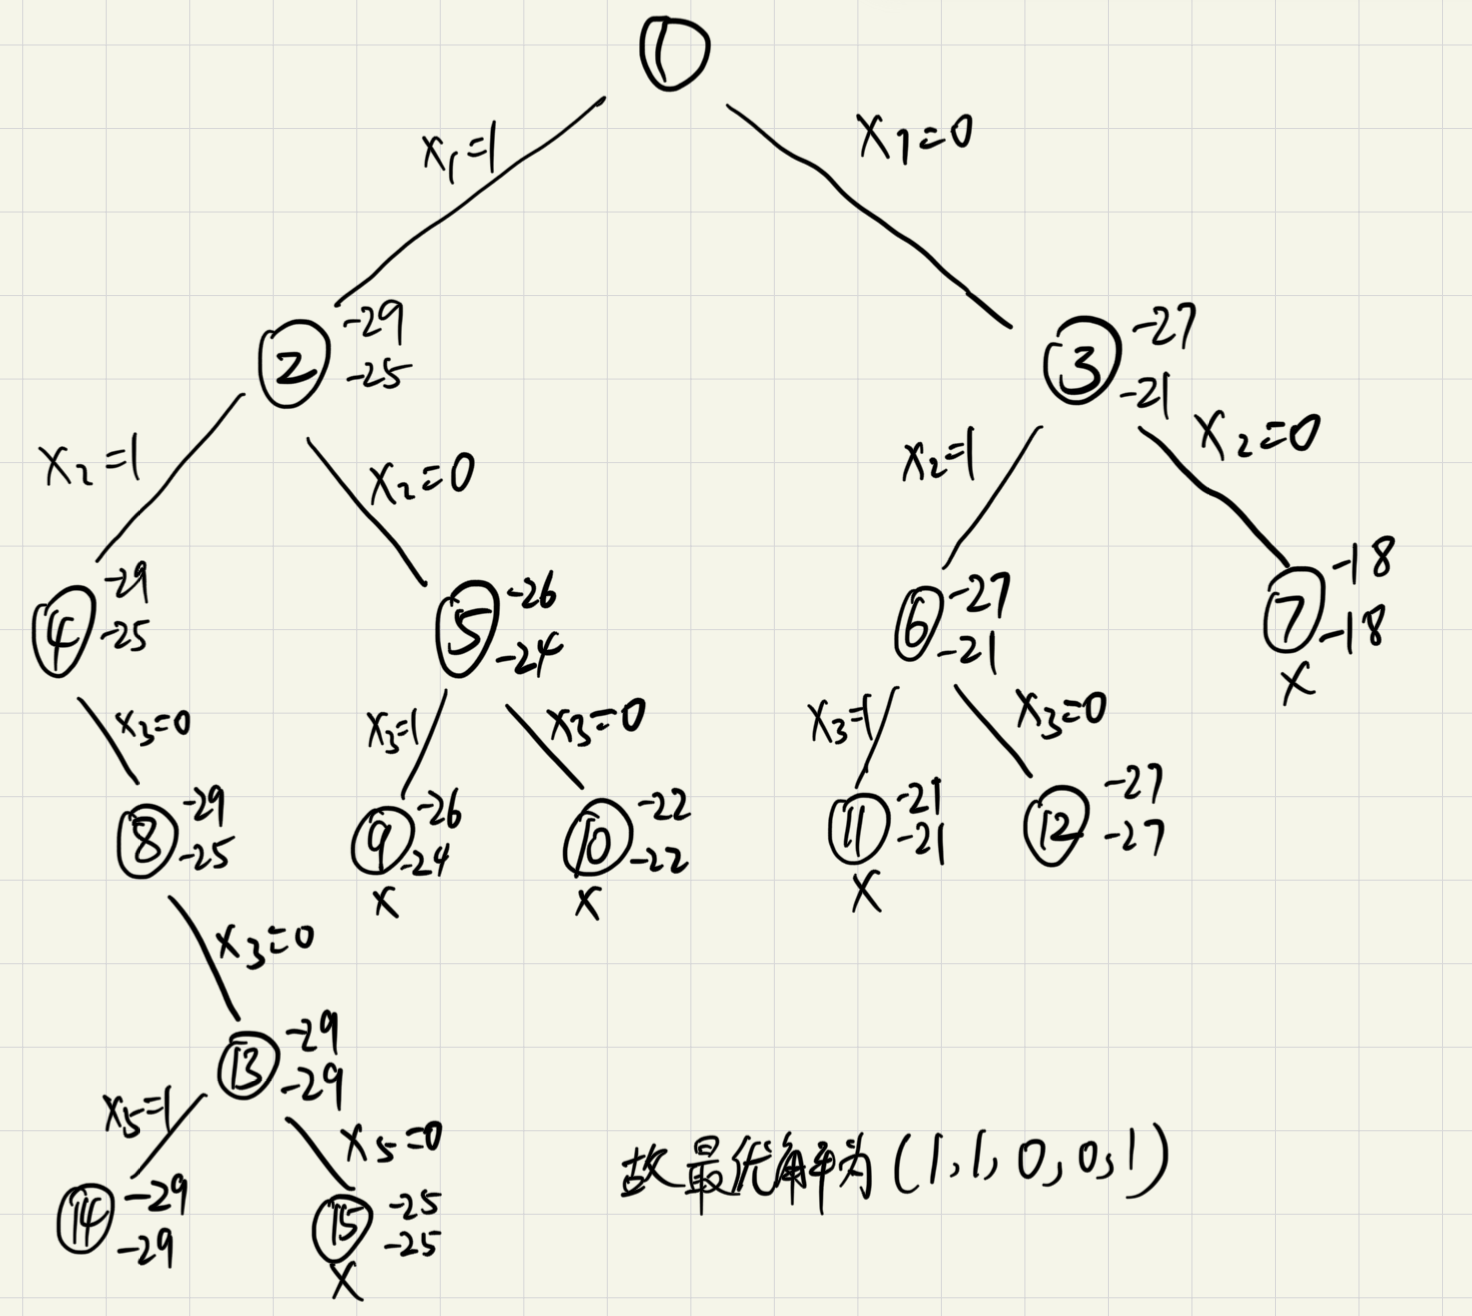 1
x₁=1
x₁=0
2 -29
-25
3 -27
-21
x₂=1
x₂=0
x₂=1
x₂=0
4 -29
-25
5 -26
-24
6 -27
-21
7 -18
-18
X
x₃=0
x₃=1
x₃=0
x₃=1
x₃=0
8 -29
-25
9 -26
-24
X
10 -22
-22
X
11 -21
-21
X
12 -27
-27
x₃=0
13 -29
-29
x₅=1
x₅=0
14 -29
-29
15 -25
-25
X
故最优解为(1,1,0,0,1)